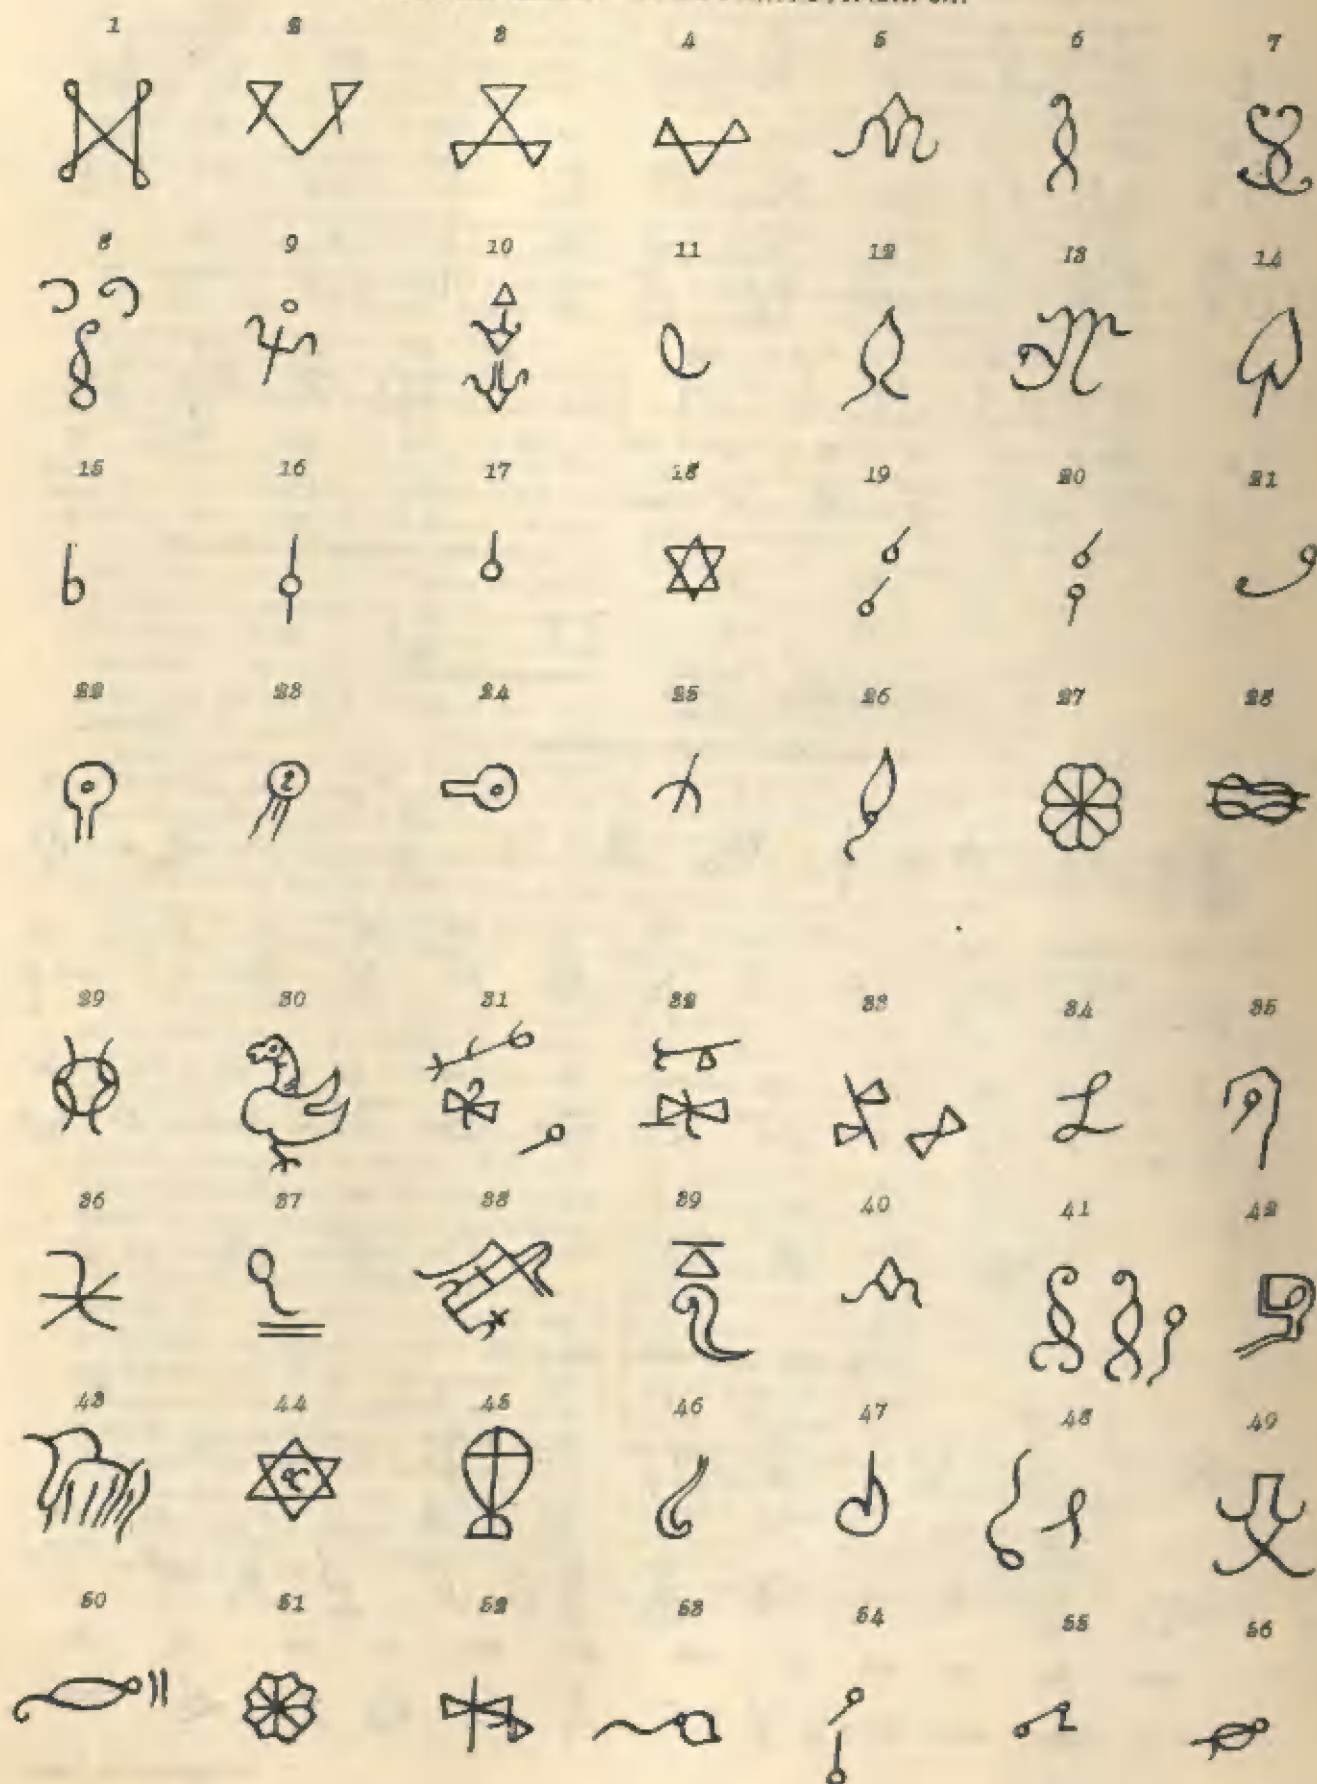 1 2 3 4 5 6 7
8 9 10 11 12 13 14
15 16 17 18 19 20 21
22 23 24 25 26 27 28
29 30 31 32 33 34 35
36 37 38 39 40 41 42
43 44 45 46 47 48 49
50 51 52 53 54 55 56